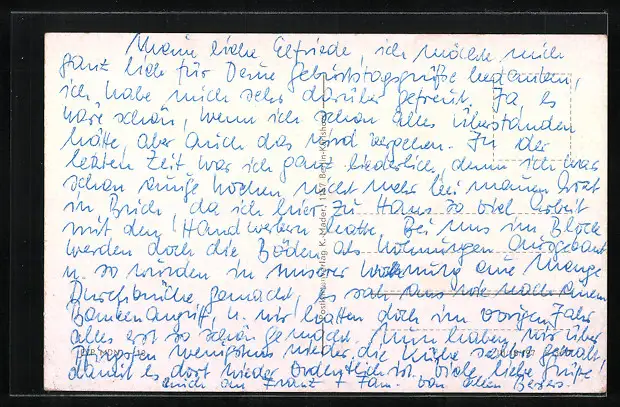 Meine liebe Elfriede, ich möchte mich
ganz lieb für Deine Geburtstagsgrüße bedanken,
ich habe mich sehr darüber gefreut. Ja, es
wäre schön, wenn ich schon alles überstanden
hätte, aber auch das wird vergehen. In der
letzten Zeit war ich ganz liederlich, denn ich war
schon einige Wochen nicht mehr bei meinem Arzt
in Buch, da ich hier zu Haus so viel Arbeit
mit den Handwerkern hatte. Bei uns im Block
werden doch die Böden als Wohnungen ausgebaut
u. so wurden in unserer Wohnung eine Menge
Durchbrüche gemacht, es sah aus wie nach einem
Bombenangriff, u. wir hatten doch im vorigen Jahr
alles erst so schön gemacht. Nun haben wir über
Pfingsten wenigstens wieder die Küche gemalt,
damit es dort wieder ordentlich ist. Viele liebe Grüße!
auch an Franz + Fam. von allen
Verlag K. Mader, 1157 Berlin-Karlshorst